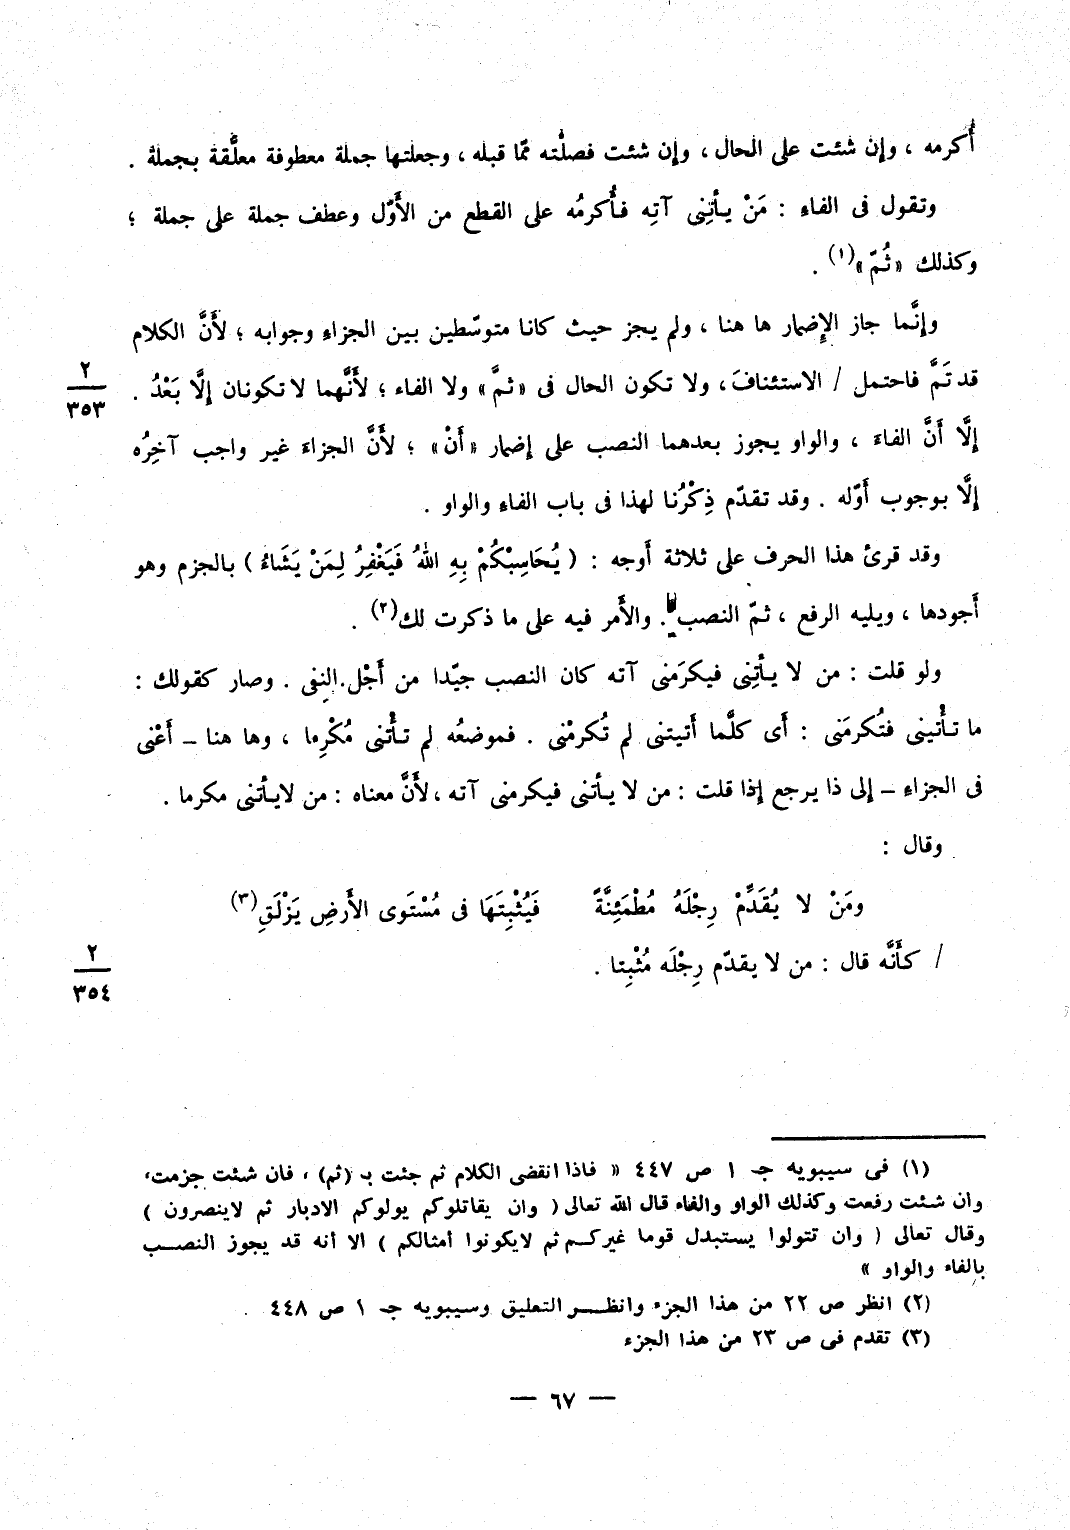 أُكرمه ، وإن شئت على الحال ، وإن شئت فصلْته ممّا قبله ، وجعلتها جملة معطوفة معلَّقة بجملة .
وتقول فى الفاءِ : مَنْ يأتِنِى آتِه فأُكرمُه على القطع من الأَوّل وعطف جملة على جملة ؛
وكذلك « ثُمّ »(١) .
وإنَّما جاز الإِضمار ها هنا ، ولم يجز حيث كانا متوسّطين بين الجزاءِ وجوابه ؛ لأَنَّ الكلام
قد تَمَّ فاحتمل / الاستئنافَ ، ولا تكون الحال فى « ثمَّ » ولا الفاء ؛ لأَنَّهما لا تكونان إلَّا بَعْدُ .
٢
٣٥٣
إلَّا أَنَّ الفاءَ ، والواو يجوز بعدهما النصب على إضمار « أَنْ » ؛ لأَنَّ الجزاءَ غير واجب آخِرُه
إلَّا بوجوب أَوّله . وقد تقدّم ذِكْرُنا لهذا فى باب الفاءِ والواو .
وقد قرئ هذا الحرف على ثلاثة أَوجه : ( يُحَاسِبْكُمْ بِهِ اللهُ فَيَغْفِرُ لِمَنْ يَشَاءُ ) بالجزم وهو
أَجودها ، ويليه الرفع ، ثمّ النصب . والأَمر فيه على ما ذكرت لك(٢) .
ولو قلت : من لا يأتِنِى فيكرمَنى آته كان النصب جيّدا من أَجْل النفى . وصار كقولك :
ما تأْتينِى فتُكرمَنى : أَى كلَّما أَتيتنى لم تُكرمْنى . فموضعُه لم تأْتنى مُكْرِما ، وها هنا – أَعْنى
فى الجزاءِ – إلى ذا يرجع إذا قلت : من لا يأتنى فيكرمنى آته ، لأَنَّ معناه : من لا يأتنى مكرما .
وقال :
ومَنْ لا يُقَدِّمْ رِجْلَهُ مُطْمَئِنَّةً فَيُثْبِتَهَا فى مُسْتَوى الأَرضِ يَزْلَقِ(٣)
/ كأَنَّه قال : من لا يقدّم رِجْلَه مُثْبِتا .
٢
٣٥٤
(١) فى سيبويه جـ ١ ص ٤٤٧ « فاذا انقضى الكلام ثم جئت بـ (ثم) ، فان شئت جزمت،
وان شئت رفعت وكذلك الواو والفاء قال الله تعالى ( وان يقاتلوكم يولوكم الادبار ثم لاينصرون )
وقال تعالى ( وان تتولوا يستبدل قوما غيركم ثم لايكونوا أمثالكم ) الا أنه قد يجوز النصب
بالفاء والواو »
(٢) انظر ص ٢٢ من هذا الجزء وانظر التعليق وسيبويه جـ ١ ص ٤٤٨ .
(٣) تقدم فى ص ٢٣ من هذا الجزء
— ٦٧ —